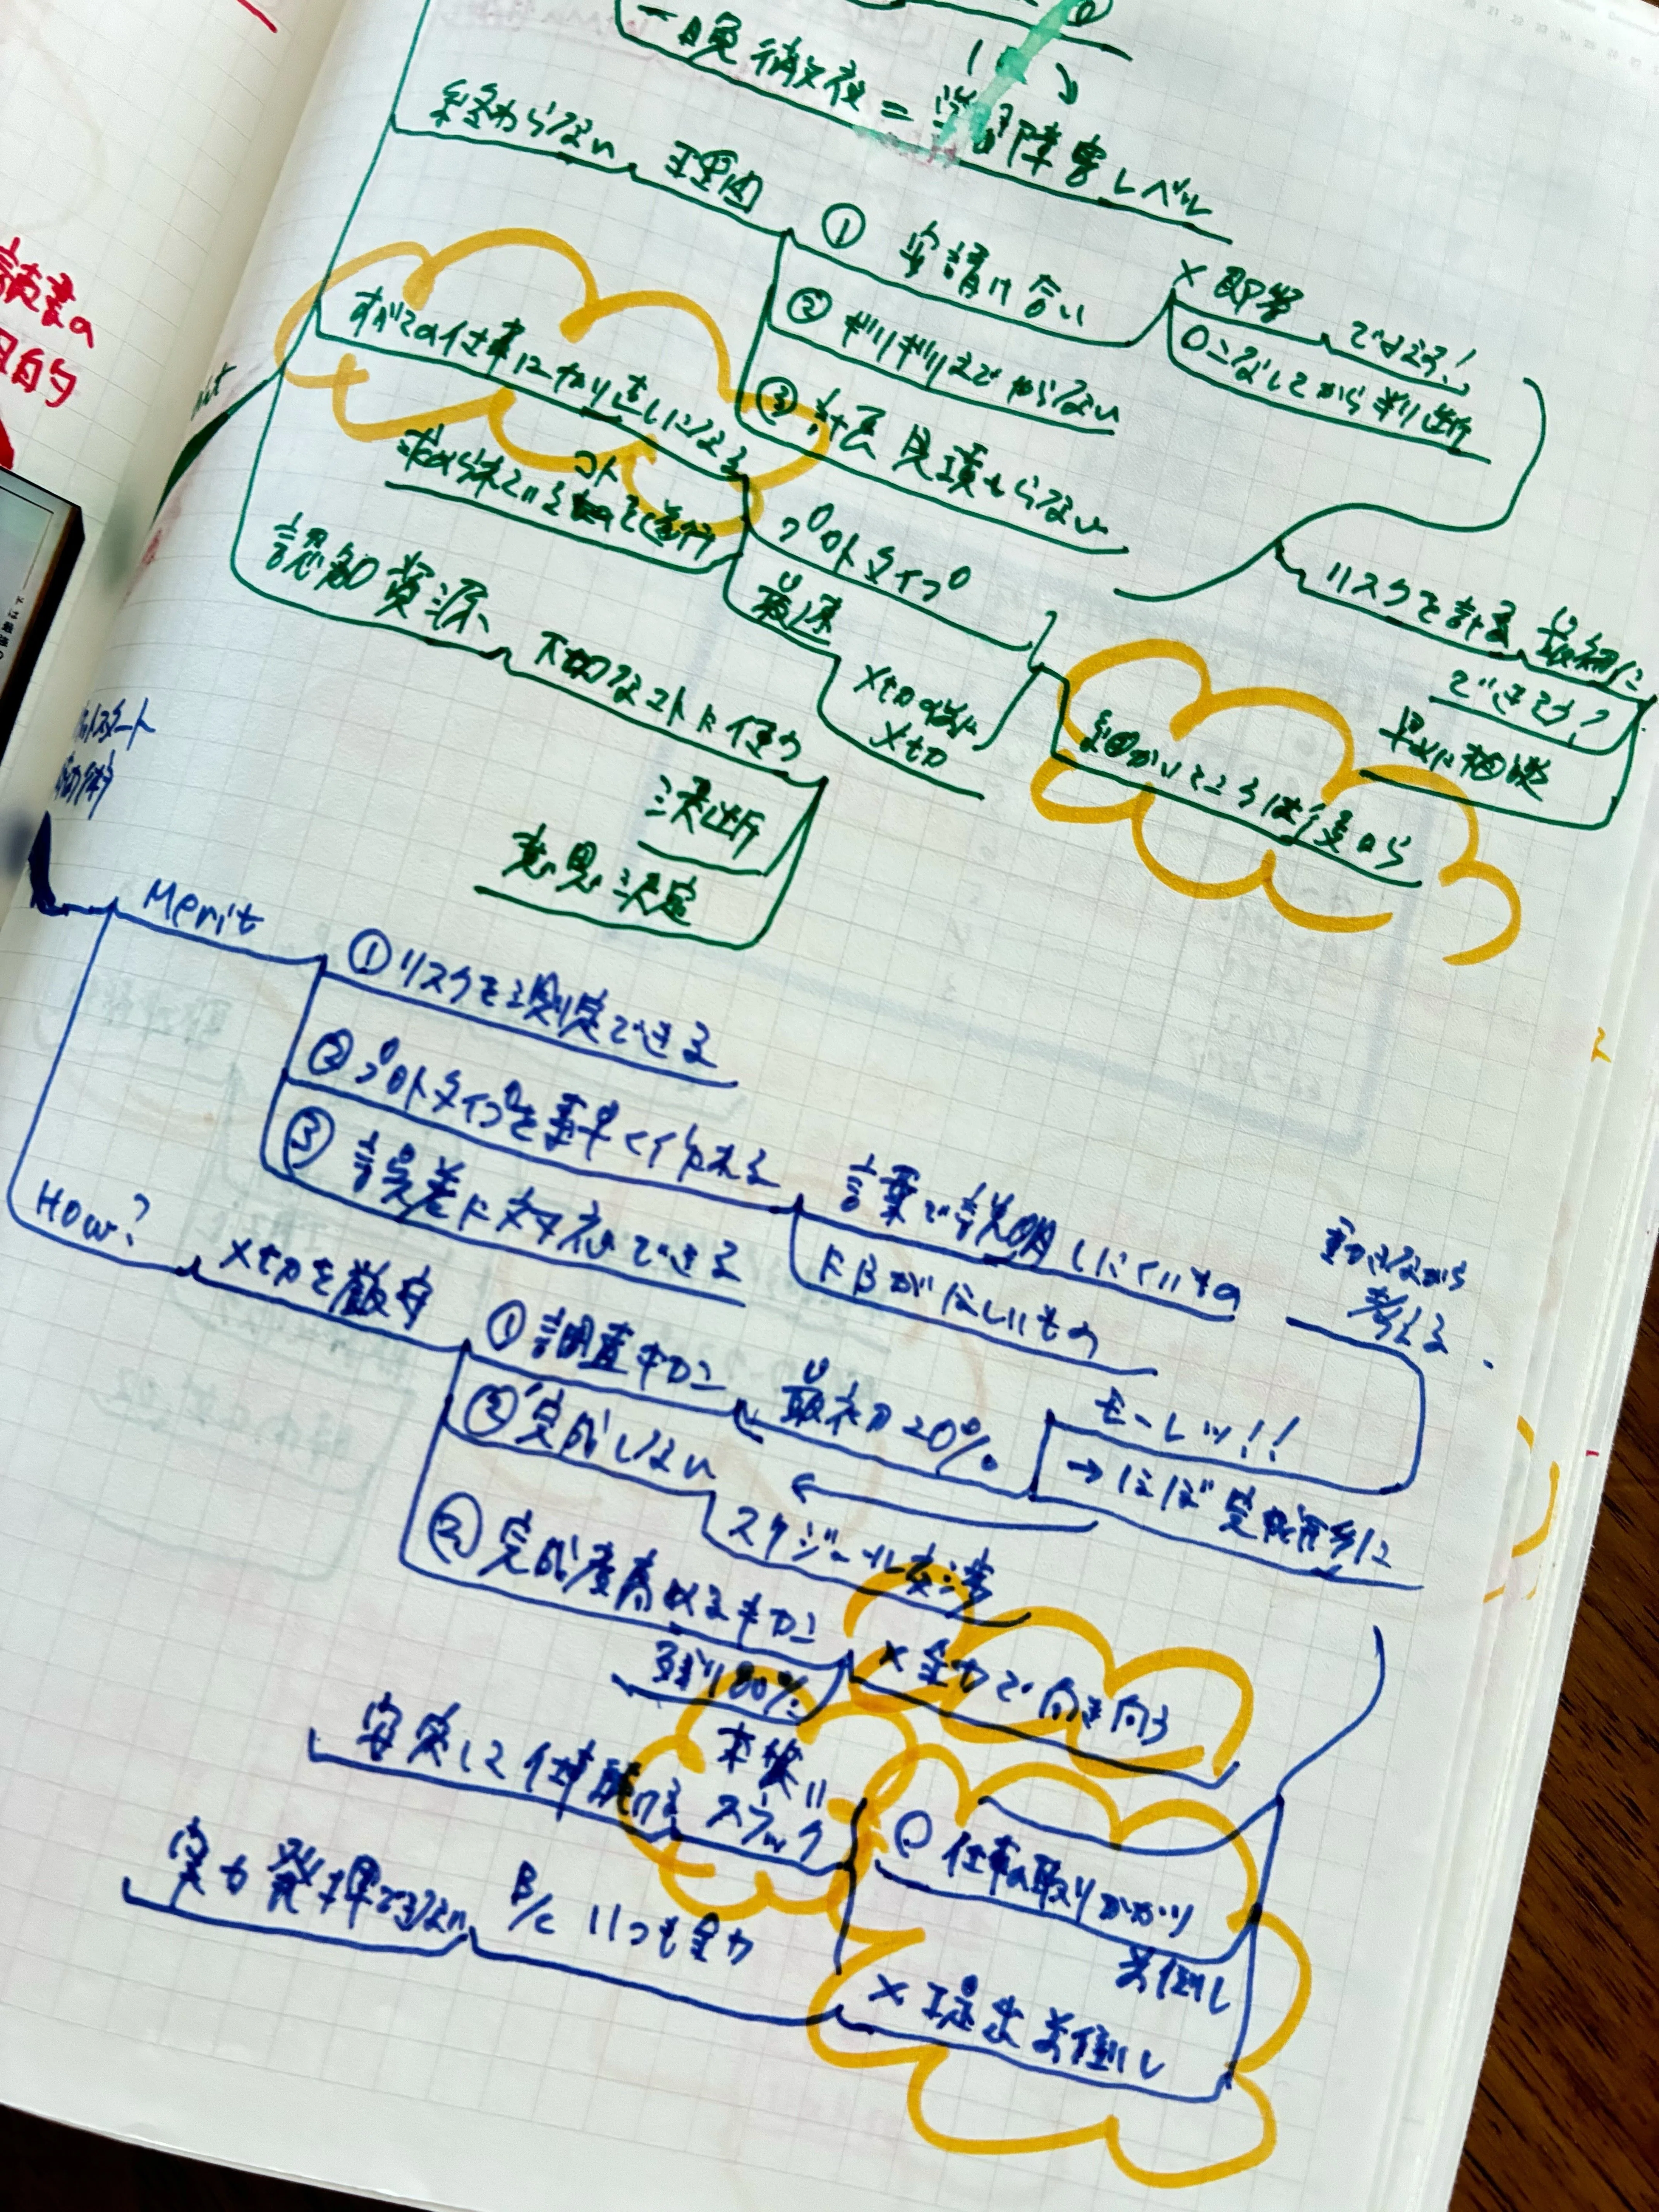 読書の
目的
一晩徹夜=脳障害レベル
終わらない 理由
① 安請け合い
② ギリギリまでやらない
③ 計画見積もらない
× 即答 ではまる!
ロこなしてから判断
リスクを計る 最初に
できそう?
早めに相談
すべての仕事はやり直しになる
プロトタイプ
最速
〆切の前に
〆切
細かいところは後から
認知資源
大切なコトに使う
決断
意思決定
ロケットスタート
Merit
① リスクを測定できる
② プロトタイプを素早く作れる
③ 誤差に対応できる
言葉で説明しにくいもの
FBがほしいもの
動きながら
考える
How?
〆切を厳守
① 調査キカン
最初の20%
モーレツ!!
→ほぼ完成形に
② 完成しない
スケジュール交渉
② 完成度高めるキカン
残り80%
× 全力で向き向う
安定して仕事続ける
本質は
スラック
○ 仕事の取りかかり
前倒し
× 提出前倒し
実力発揮できない
B/c いつも全力